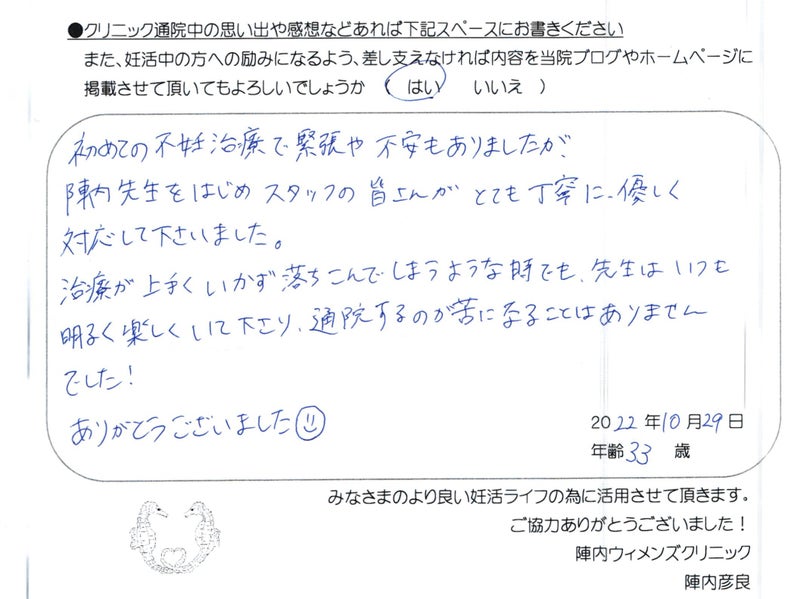 ●クリニック通院中の思い出や感想などあれば下記スペースにお書きください
また、妊活中の方への励みになるよう、差し支えなければ内容を当院ブログやホームページに
掲載させて頂いてもよろしいでしょうか （ はい いいえ ）
初めての不妊治療で緊張や不安もありましたが、
陣内先生をはじめスタッフの皆さんがとても丁寧に、優しく
対応して下さいました。
治療が上手くいかず落ちこんでしまうような時でも、先生はいつも
明るく楽しくいて下さり、通院するのが苦になることはありません
でした!
ありがとうございました
2022年10月29日
年齢33 歳
みなさまのより良い妊活ライフの為に活用させて頂きます。
ご協力ありがとうございました！
陣内ウィメンズクリニック
陣内彦良